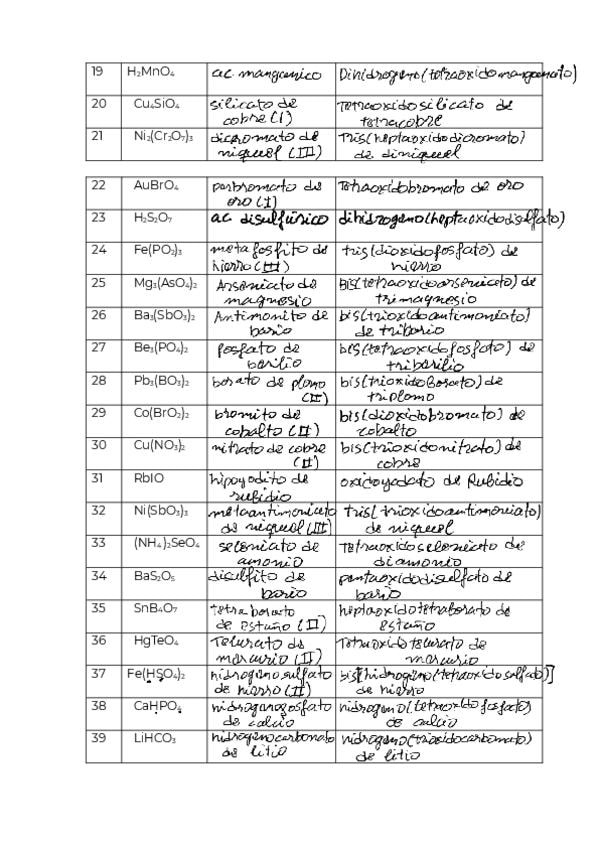 19 H₂MnO₄ ac. manganico Dihidrogeno(tetraoxidomanganato)
20 Cu₄SiO₄ silicato de Tetraoxidosilicato de
cobre(I) tetracobre
21 Ni₂(Cr₂O₇)₃ dicromato de Tris(heptaoxidodicromato)
niquel (III) de diniquel
22 AuBrO₄ perbromato de Tetraoxidobromato de oro
oro (I)
23 H₂S₂O₇ ac. disulfúrico dihidrogeno(heptaoxidodisulfato)
24 Fe(PO₂)₃ metafosfito de tris(dioxidofosfato) de
hierro (III) hierro
25 Mg₃(AsO₄)₂ Arseniato de Bis(tetraoxidoarseniato) de
magnesio trimagnesio
26 Ba₃(SbO₃)₂ Antimonito de bis(trioxidoantimoniato)
bario de tribario
27 Be₃(PO₄)₂ fosfato de bis(tetraoxidofosfato) de
berilio triberilio
28 Pb₃(BO₃)₂ borato de plomo bis(trioxidoborato) de
(II) triplomo
29 Co(BrO₂)₂ bromito de bis(dioxidobromato) de
cobalto (II) cobalto
30 Cu(NO₃)₂ nitrato de cobre bis(trioxidonitrato) de
(II) cobre
31 RbIO hipoyodito de oxidoyodato de Rubidio
rubidio
32 Ni(SbO₃)₃ metaantimoniato tris(trioxidoantimoniato)
de niquel (III) de niquel
33 (NH₄)₂SeO₄ seleniato de Tetraoxidoseleniato de
amonio diamonio
34 BaS₂O₅ disulfito de pentaoxidodisulfato de
bario bario
35 SnB₄O₇ tetraborato heptaoxidotetraborato de
de estaño (II) estaño
36 HgTeO₄ Telurato de Tetraoxidotelurato de
mercurio (II) mercurio
37 Fe(HSO₄)₂ hidrogenosulfato bis[hidrogeno(tetraoxidosulfato)]
de hierro (II) de hierro
38 CaHPO₄ hidrogenofosfato hidrogeno(tetraoxidofosfato)
de calcio de calcio
39 LiHCO₃ hidrogenocarbonato hidrogeno(trioxidocarbonato)
de litio de litio